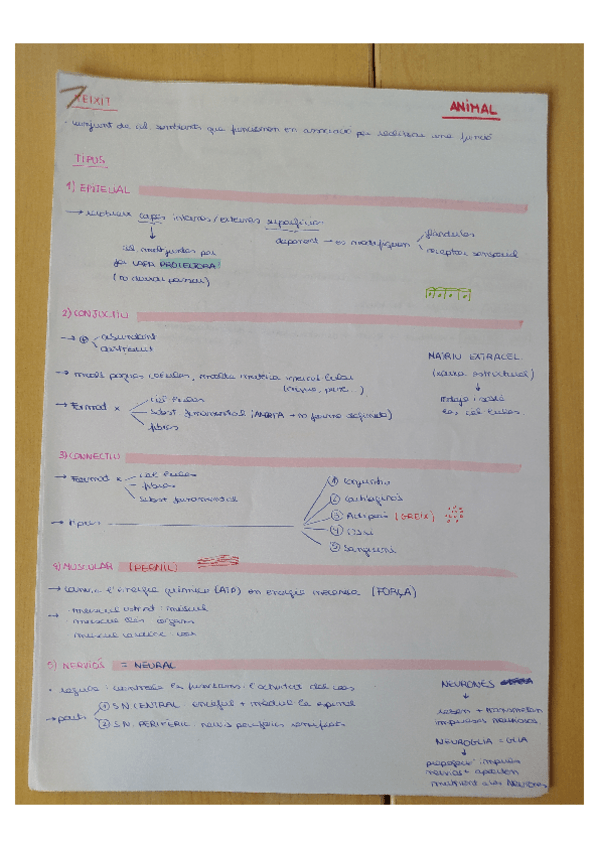 TEIXIT
ANIMAL
conjunt de cèl. semblants que funcionen en associació per realitzar una funció
TIPUS
1) EPITELIAL
→ recobreix capes internes/externes superfícies
cèl molt juntes per
fer CAPA PROTECTORA
(no deixar passar)
depenent → es modifiquen
glàndules
receptor sensorial
2) CONJUCTIU
→ ⊕
abundant
distribuït
→ molt poques cèl·lules, molta matèria
→ Format x
subst fonamental (AMORFA → no forma definida)
fibres
MATRIU EXTRACEL.
(xarxa estructural)
3) CONNECTIU
→ Format x
fibres
subst fonamental
→ tipus
① Conjuntiu
② Cartilaginós
③ Adipós (GREIX)
④ Ossi
⑤ Sanguini
4) MUSCULAR (PERNIL)
→ energia química (ATP) en energia mecànica (FORÇA)
→ múscul estriat: múscul
múscul llis: òrgans
múscul cardíac: cor
5) NERVIÓS = NEURAL
regula i controla les funcions i l'activitat del cos
→ parts
① S.N CENTRAL: encèfal + medul·la espinal
② S.N. PERIFÈRIC: nervis perifèrics
NEURONES
reben + transmeten
impulsos nerviosos
NEUROGLIA = GLIA
propagació impuls
nerviós + aporten
nutrient a les NEURONES